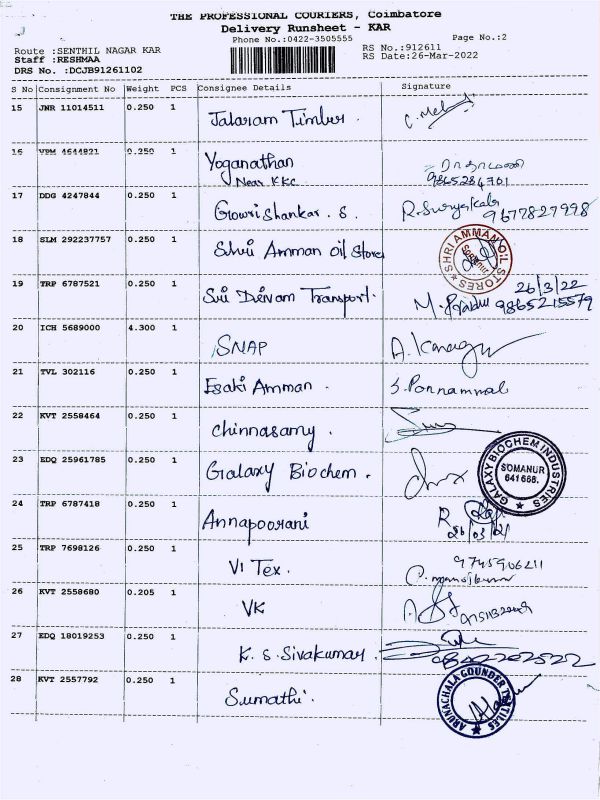 THE PROFESSIONAL COURIERS, Coimbatore
Delivery Runsheet - KAR
Phone No.:0422-3505555 Page No.:2
Route :SENTHIL NAGAR KAR RS No.:912611
Staff :RESHMAA RS Date:26-Mar-2022
DRS No. :DCJB91261102
S No Consignment No Weight PCS Consignee Details Signature
15 JNR 11014511 0.250 1 Jalaram Timber.
16 VPM 4644821 0.250 1 Yoganathan
Near KKC
17 DDG 4247844 0.250 1 Gowrishankar. S. 9677827998
18 SLM 292237757 0.250 1 Shri Amman oil stores SHRI AMMAN OIL STORES SOMANUR
19 TRP 6787521 0.250 1 Sri Deivam Transport. 26/3/22
M. Prabhu 9865215579
20 ICH 5689000 4.300 1 SNAP
21 TVL 302116 0.250 1 Esaki Amman. S. Ponnammal
22 KVT 2558464 0.250 1 Chinnasamy.
23 EDQ 25961785 0.250 1 Galaxy Biochem. GALAXY BIOCHEM INDUSTRIES SOMANUR 641 668.
24 TRP 6787418 0.250 1 Annapoorani
25 TRP 7698126 0.250 1 VI Tex.
26 KVT 2558680 0.205 1 VK
27 EDQ 18019253 0.250 1 K. S. Sivakumar.
28 KVT 2557792 0.250 1 Sumathi. ARUNACHALA GOUNDER TEXTILES